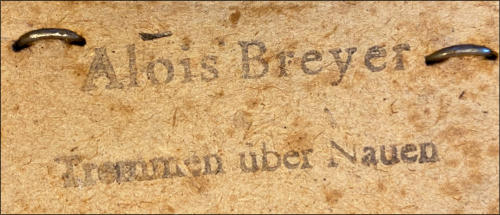 Alois Breyer
Tremmen über Nauen